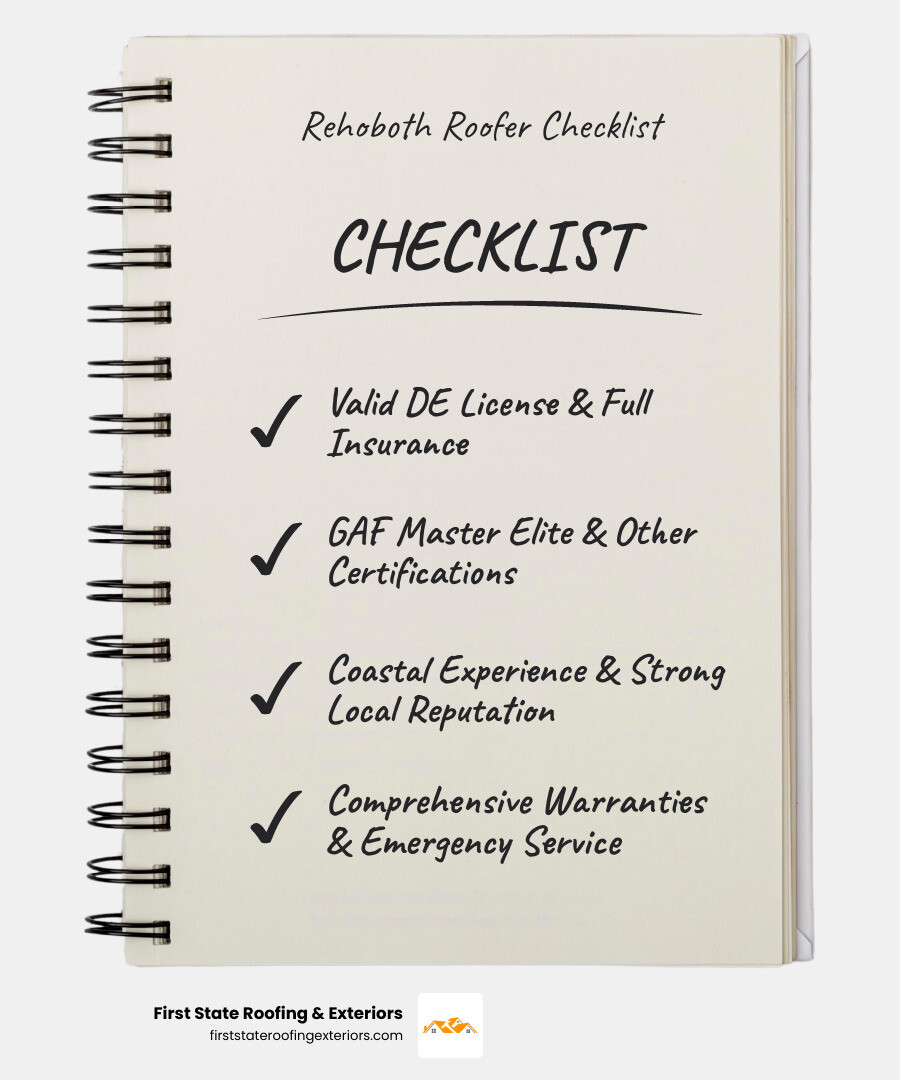 Rehoboth Roofer Checklist
CHECKLIST
Valid DE License & Full
Insurance
GAF Master Elite & Other
Certifications
Coastal Experience & Strong
Local Reputation
Comprehensive Warranties
& Emergency Service
First State Roofing & Exteriors
firststateroofingexteriors.com